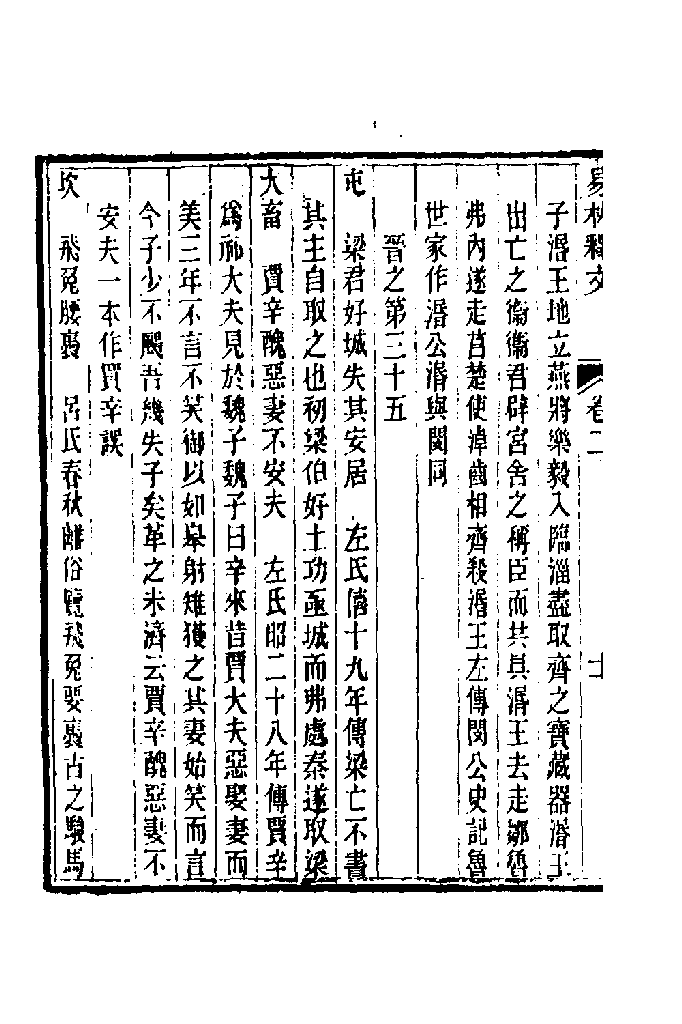 易林釋文 卷二 十
子湣王地立燕將樂毅入臨淄盡取齊之寶藏器湣王
出亡之衞衞君辟宮舍之稱臣而共具湣王去走鄒魯
弗內遂走莒楚使淖齒相齊殺湣王左傳閔公史記魯
世家作湣公湣與閔同
晉之第三十五
屯 梁君好城失其安居 左氏僖十九年傳梁亡不書
其主自取之也初梁伯好土功亟城而弗處秦遂取梁
大畜 賈辛醜惡妻不安夫 左氏昭二十八年傳賈辛
爲祁大夫見於魏子魏子曰辛來昔賈大夫惡娶妻而
美三年不言不笑御以如皋射雉獲之其妻始笑而言
今子少不颺吾幾失子矣革之未濟云賈辛醜惡妻不
安夫一本作買辛誤
坎 飛兔腰褭 呂氏春秋離俗覽飛兔要褭古之駿馬